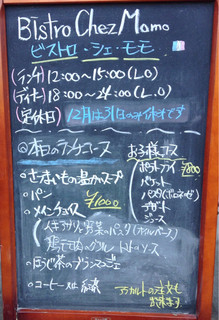 Bistro Chez Momo
ビストロ・シェ・モモ
(ランチ) 12:00〜15:00 (L.O)
(ディナー) 18:00〜24:00 (L.O)
(定休日) 12月は31日のみ休みです
◎本日のランチコース
・さつまいもの温かいスープ
・パン
・メインチョイス ¥1000
人参
野菜のパスタ(オイルベース)
鶏モモ肉のグリル トマトソース
・ほうじ茶のブランマンジェ
・コーヒー又は紅茶
お子様コース
ポテトフライ ¥800
バゲット
パスタ(ボロネーゼ)
デザート
ジュース
アラカルトのご注文も
出来ます